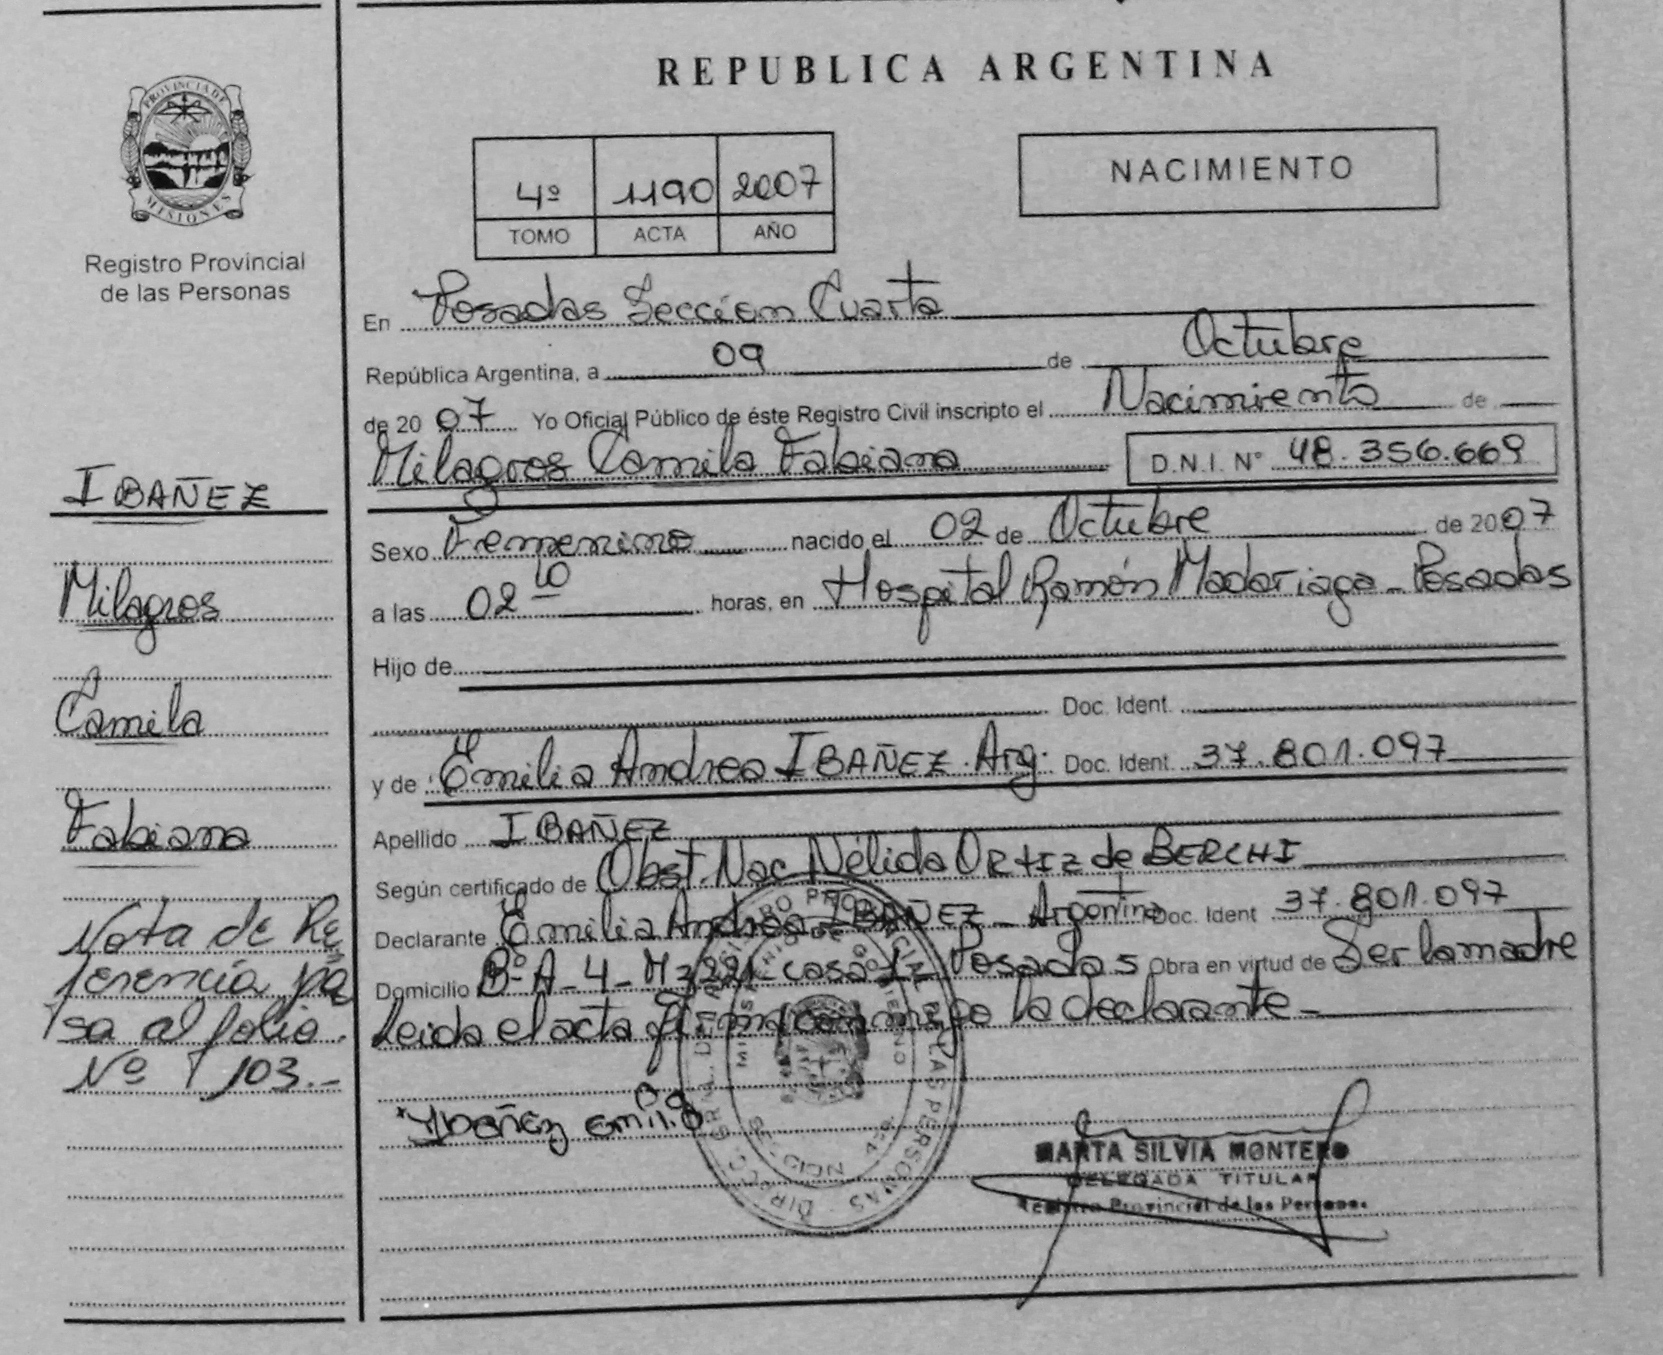 REPUBLICA ARGENTINA
PROVINCIA DE
MISIONES
Registro Provincial
de las Personas
4º 1190 2007
TOMO ACTA AÑO
NACIMIENTO
En Posadas Sección Cuarta
República Argentina, a 09 de Octubre
de 2007 Yo Oficial Público de éste Registro Civil inscripto el Nacimiento de
Milagros Camila Fabiana D.N.I. N° 48.356.669
Sexo Femenino nacido el 02 de Octubre de 2007
a las 02 10 horas, en Hospital Ramón Madariaga - Posadas
Hijo de
Doc. Ident.
y de Emilia Andrea IBAÑEZ. Arg. Doc. Ident. 37.801.097
Apellido IBAÑEZ
Según certificado de Obst. Nac Nélida ORTIZ de BERCHI
Declarante Emilia Andrea IBAÑEZ - Argentina Doc. Ident 37.801.097
Domicilio Bº A-4- Mz 221- casa Posadas Obra en virtud de Ser la madre
Leida el acta firma conmigo la declarante-
Ibañez Emilia
MARTA SILVIA MONTERO
DELEGADA TITULAR
Registro Provincial de las Personas
IBAÑEZ
Milagros
Camila
Fabiana
Nota de Re
ferencia pa
sa al folio
Nº 103.-